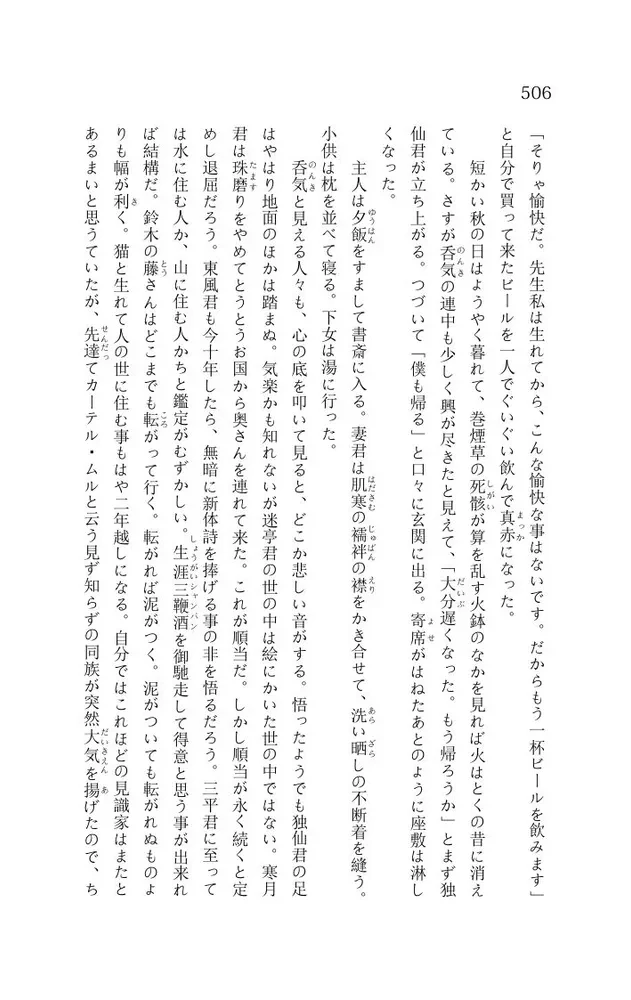 506
「そりゃ愉快だ。先生私は生れてから、こんな愉快な事はないです。だからもう一杯ビールを飲みます」
と自分で買って来たビールを一人でぐいぐい飲んで真赤になった。
短かい秋の日はようやく暮れて、巻煙草の死骸が算を乱す火鉢のなかを見れば火はとくの昔に消え
ている。さすが呑気の連中も少しく興が尽きたと見えて、「大分遅くなった。もう帰ろうか」とまず独
仙君が立ち上がる。つづいて「僕も帰る」と口々に玄関に出る。寄席がはねたあとのように座敷は淋し
くなった。
主人は夕飯をすまして書斎に入る。妻君は肌寒の襦袢の襟をかき合せて、洗い晒しの不断着を縫う。
小供は枕を並べて寝る。下女は湯に行った。
呑気と見える人々も、心の底を叩いて見ると、どこか悲しい音がする。悟ったようでも独仙君の足
はやはり地面のほかは踏まぬ。気楽かも知れないが迷亭君の世の中は絵にかいた世の中ではない。寒月
君は珠磨りをやめてとうとうお国から奥さんを連れて来た。これが順当だ。しかし順当が永く続くと定
めし退屈だろう。東風君も今十年したら、無暗に新体詩を捧げる事の非を悟るだろう。三平君に至って
は水に住む人か、山に住む人かちと鑑定がむずかしい。生涯三鞭酒を御馳走して得意と思う事が出来れ
ば結構だ。鈴木の藤さんはどこまでも転がって行く。転がれば泥がつく。泥がついても転がれぬものよ
りも幅が利く。猫と生れて人の世に住む事もはや二年越しになる。自分ではこれほどの見識家はまたと
あるまいと思うていたが、先達てカーテル・ムルと云う見ず知らずの同族が突然大気を揚げたので、ち